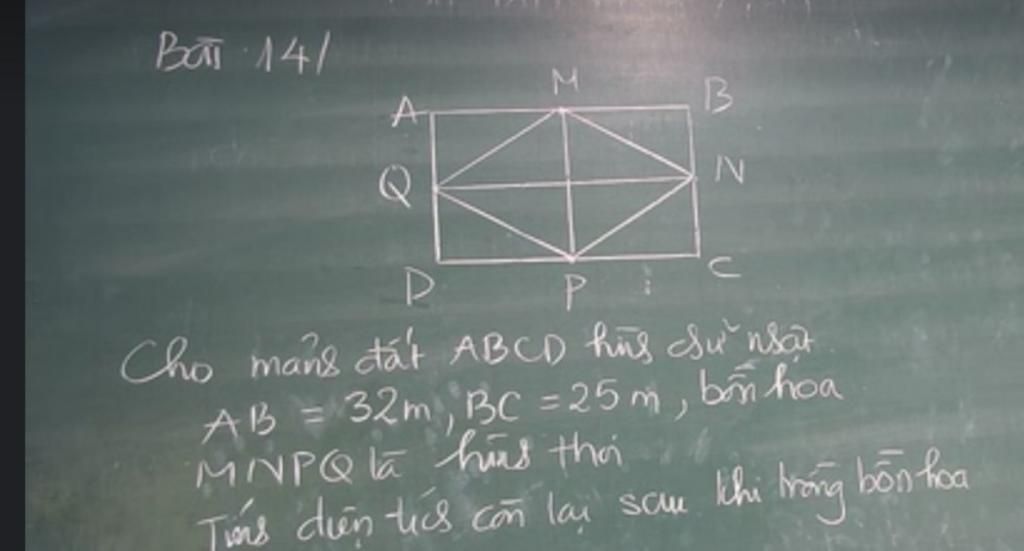 Bài 14/
A M B
Q N
D P C
Cho mảnh đất ABCD hình chữ nhật
AB = 32m, BC = 25m, bồn hoa
MNPQ là hình thoi
Tính diện tích còn lại sau khi trồng bồn hoa